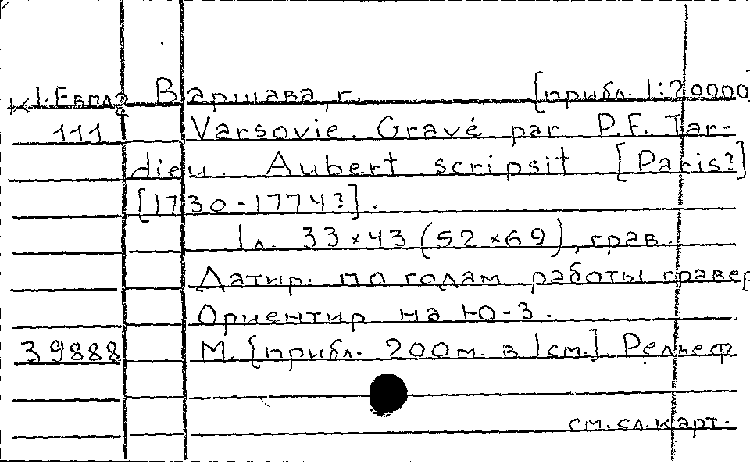 К 1-Евпл2 Варшава, г. [прибл. 1:20000]
111 Varsovie. Gravé par P.F. Tar-
dieu. Aubert scripsit [Paris?]
[1730-1774?].
1 л. 33×43 (52×69), грав.
Датир. по годам работы гравер
Ориентир на Ю-З.
39888 М. [прибл. 200м. в 1см.] Рельеф
см. сл. карт.